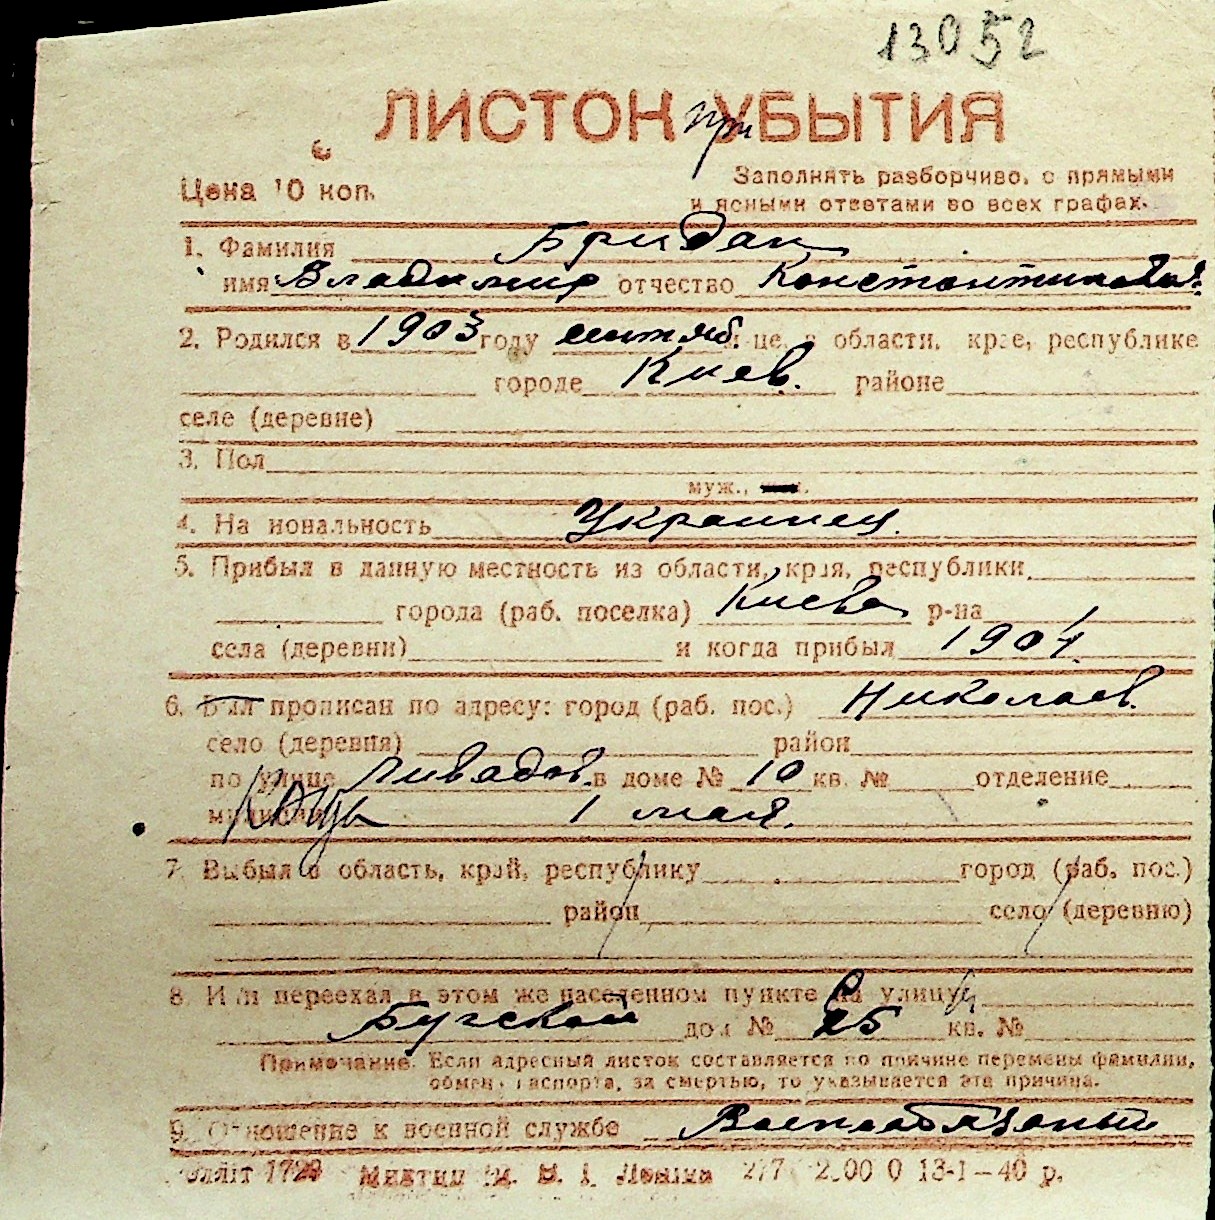 13052
ЛИСТОК при УБЫТИЯ
Цена 10 коп.
Заполнять разборчиво, с прямыми
и ясными ответами во всех графах.
1. Фамилия Бридан
имя Владимир отчество Константинович
2. Родился в 1903 году сентяб. м-це, в области, крае, республике
городе Киев. районе
селе (деревне)
3. Пол
муж.,
4. Национальность Украинец.
5. Прибыл в данную местность из области, края, республики
города (раб. поселка) Киева р-на
села (деревни) и когда прибыл 1904.
6. Был прописан по адресу: город (раб. пос.) Николаев.
село (деревня) район
по улице Ливадов. в доме № 10 кв. № отделение
милиции 1 мая.
7. Выбыл в область, край, республику город (раб. пос.)
район село (деревню)
8. Или переехал в этом же населенном пункте на улицу
Бугской дом № 25 кв. №
Примечание. Если адресный листок составляется по причине перемены фамилии,
обмена паспорта, за смертью, то указывается эта причина.
9. Отношение к военной службе Военнообязанный
1729 им. В. І. Леніна 277 2.00 0 13-I-40 р.